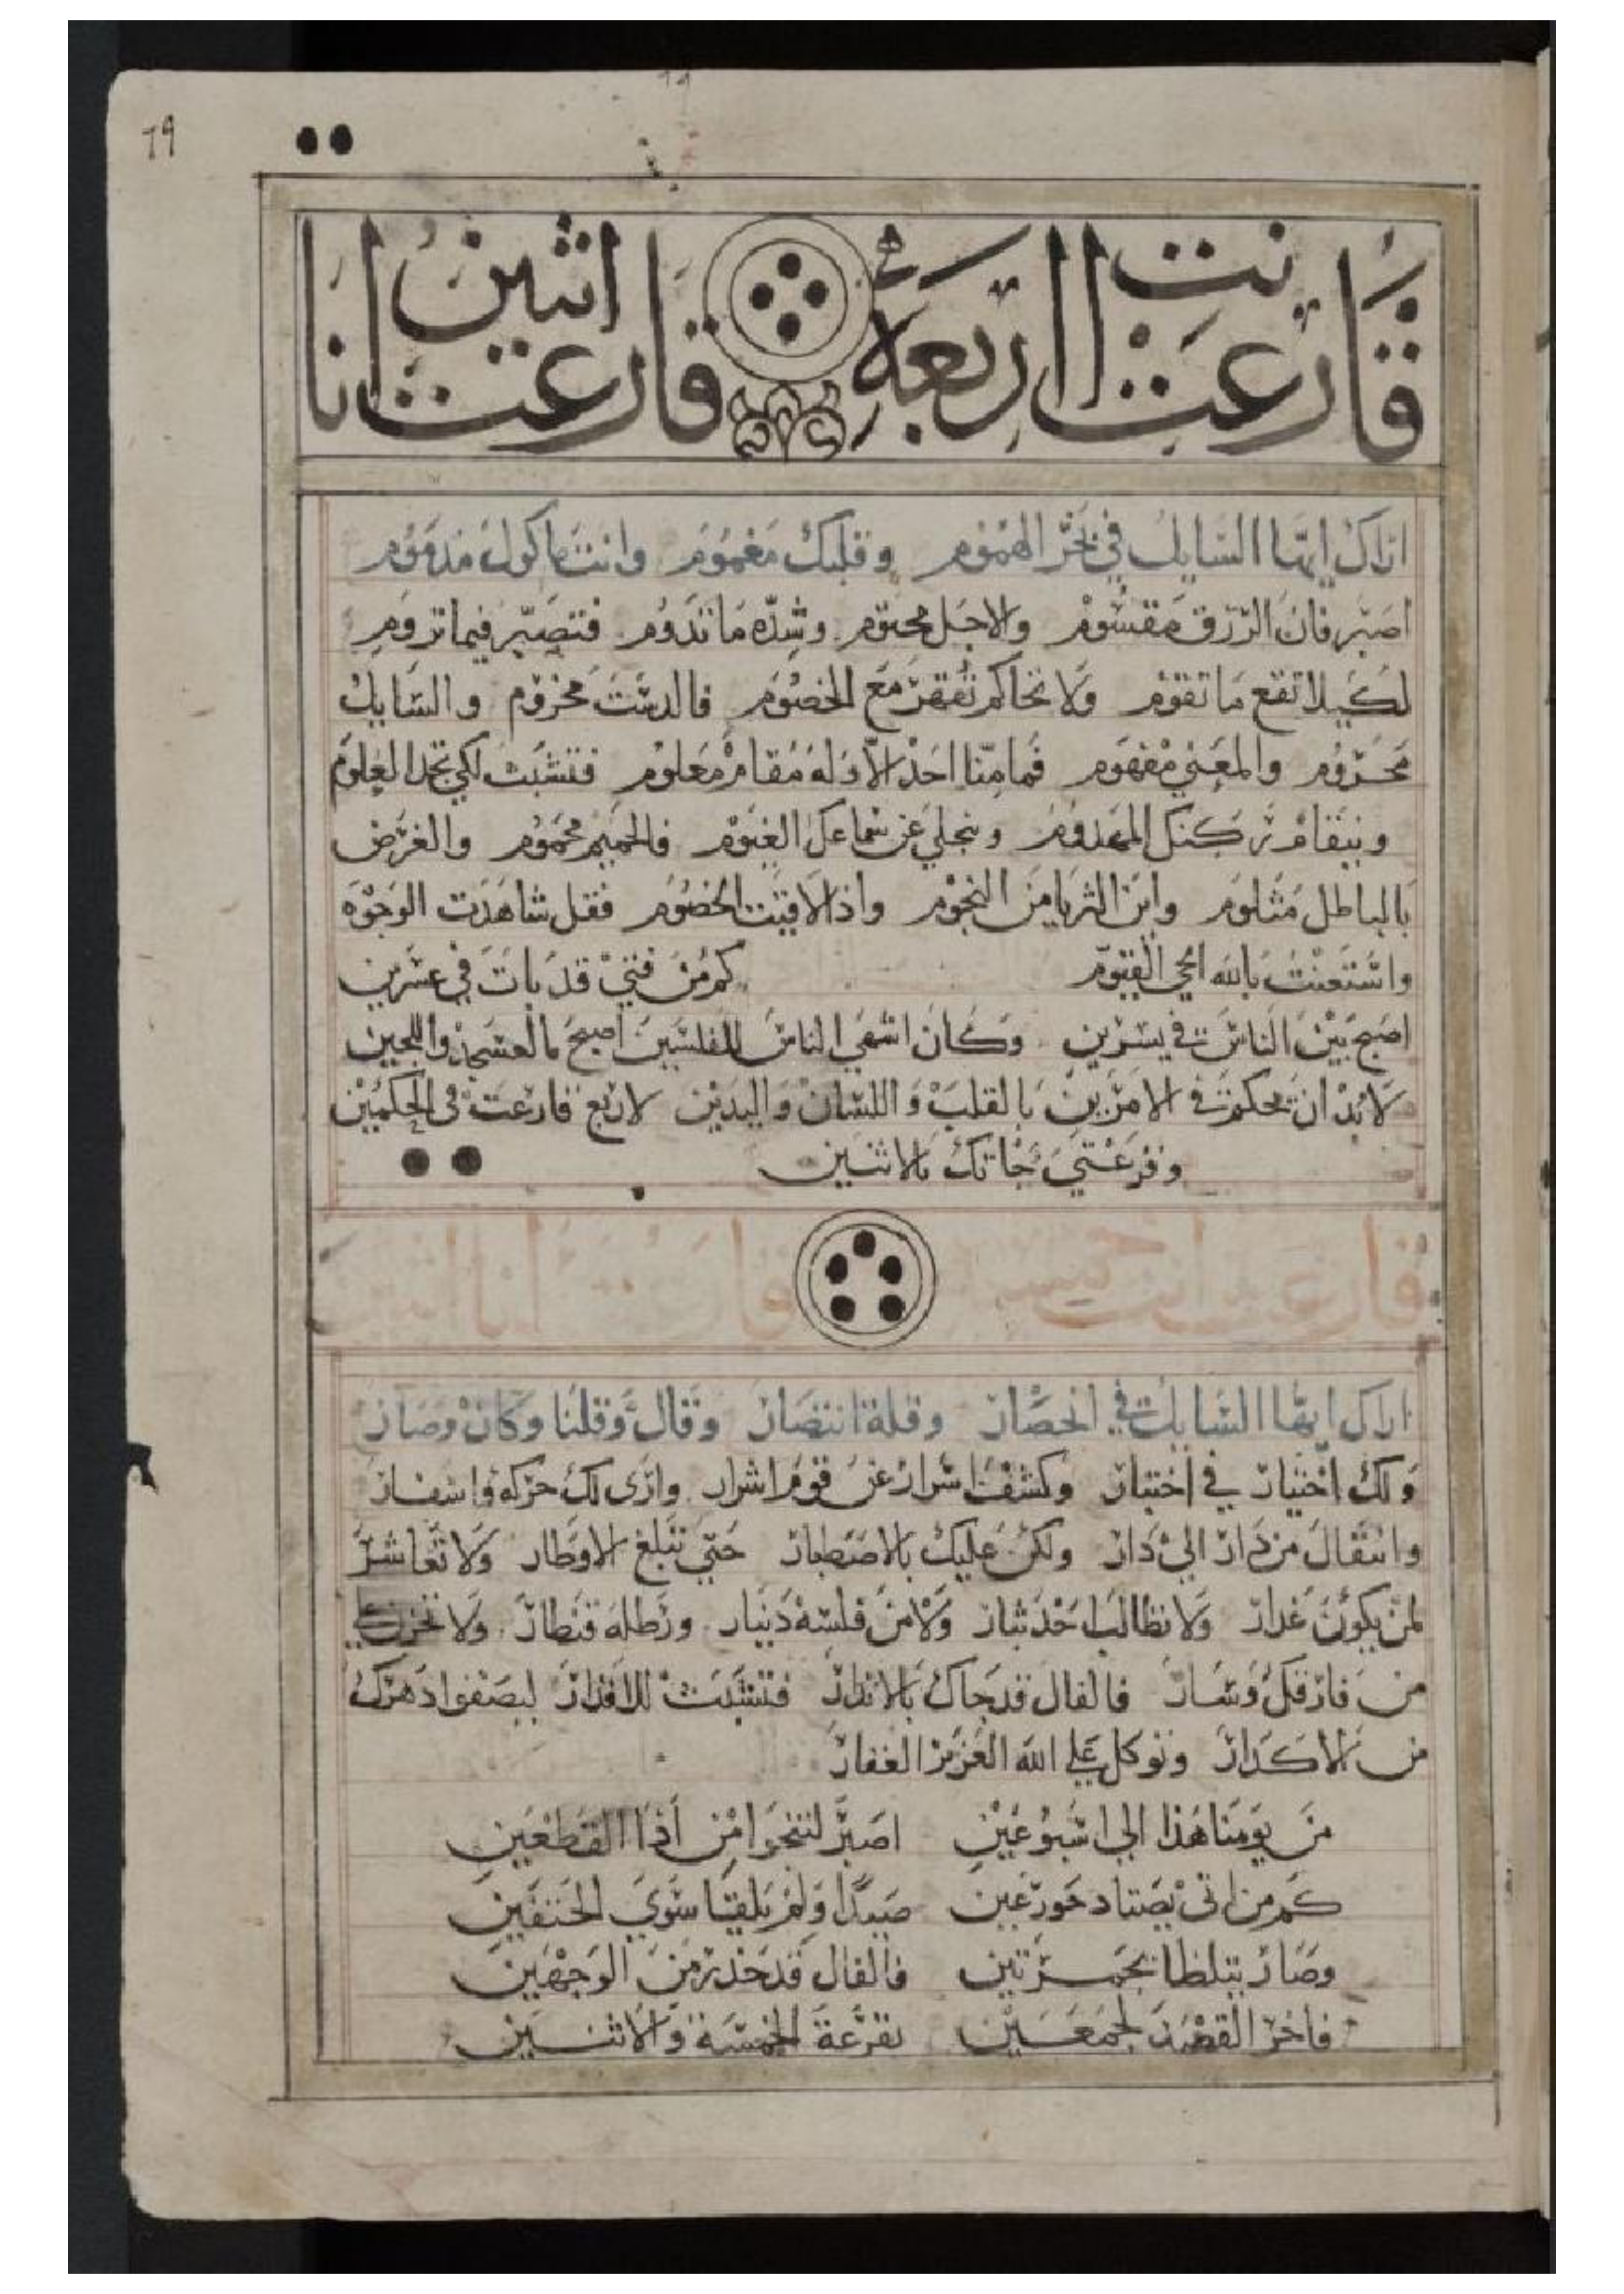 ٦٩
قارعت انت اربعة قارعت انا اثنين
اراك ايها السايل في بحر الهموم وقلبك مغموم وانت ماكول مذموم
اصبر فان الرزق مقسوم والاجل محتوم وشده ما تدوم فتصبر فيما تروم
لكيلا تقع ما تقوم ولا تحاكم تقهر مع الخصوم فالدست محزوم والسايل
محروم والمعني مفهوم فما منا احد الا وله مقام معلوم فتثبت لكي تحمد العلوم
وينجلي عن سماعك الغيوم فالحميم محموم والغرض
بالباطل مثلوم واين الثريا من النجوم واذا لاقيت الخصوم فقل شاهدت الوجوه
واستعنت بالله الحي القيوم كم من فتي قد بات في عسرين
اصبح بين الناس في يسرين وكان اشهي الناس للفلسين اصبح بالعسجد واللجين
لا بد ان تحكم في الامرين بالقلب واللسان واليدين لاربع قارعت في الحكمين
وقرعتي جاتك بالاثنين
قارعت انت خمسه قارعت انا اثنين
اراك ايها السايل في انحصار وقلة انتصار وقال وقلنا وكان وصار
ولك اختيار في اختيار وكشفت اسرار عن قوم اشرار واري لك حركة واسفار
وانتقال من دار الي دار ولكن عليك بالاصطبار حتي تبلغ الاوطار ولا تعاشر
لمن يكون غدار ولا تطالب احد بثار ولا من فلسه دينار ورطله قنطار ولا تحزن علي
من فارقك وسار فالفال قد جاك بالانذار فتثبت للاقدار ليصفوا دهرك
من الاكدار وتوكل علي الله العزيز الغفار
من يومنا هذا الي اسبوعين اصبر لتنجوا من اذا القطعين
كم من اتي يصتاد حور عين صيدا ولم يلقيا سوي الحتفين
وصار يتلظا بجمرتين فالفال قد حذر من الوجهين
فاخر القصد لجمعتين بقرعة الخمسة والاثنين